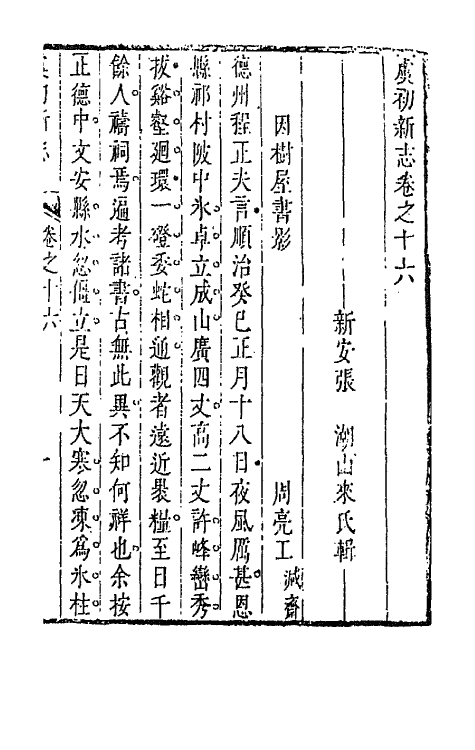 虞初新志卷之十六
新安張　潮山來氏輯
因樹屋書影　周亮工減齋
德州程正夫言順治癸巳正月十八日夜風厲甚恩
縣祁村陂中氷卓立成山廣四丈高二丈許峰巒秀
拔谿壑迴環一磴委蛇相通觀者遠近褁糧至日千
餘人禱祠焉遍考諸書古無此異不知何祥也余按
正德中文安縣水忽僵立是日天大寒忽凍爲氷柱
卷之十六　一